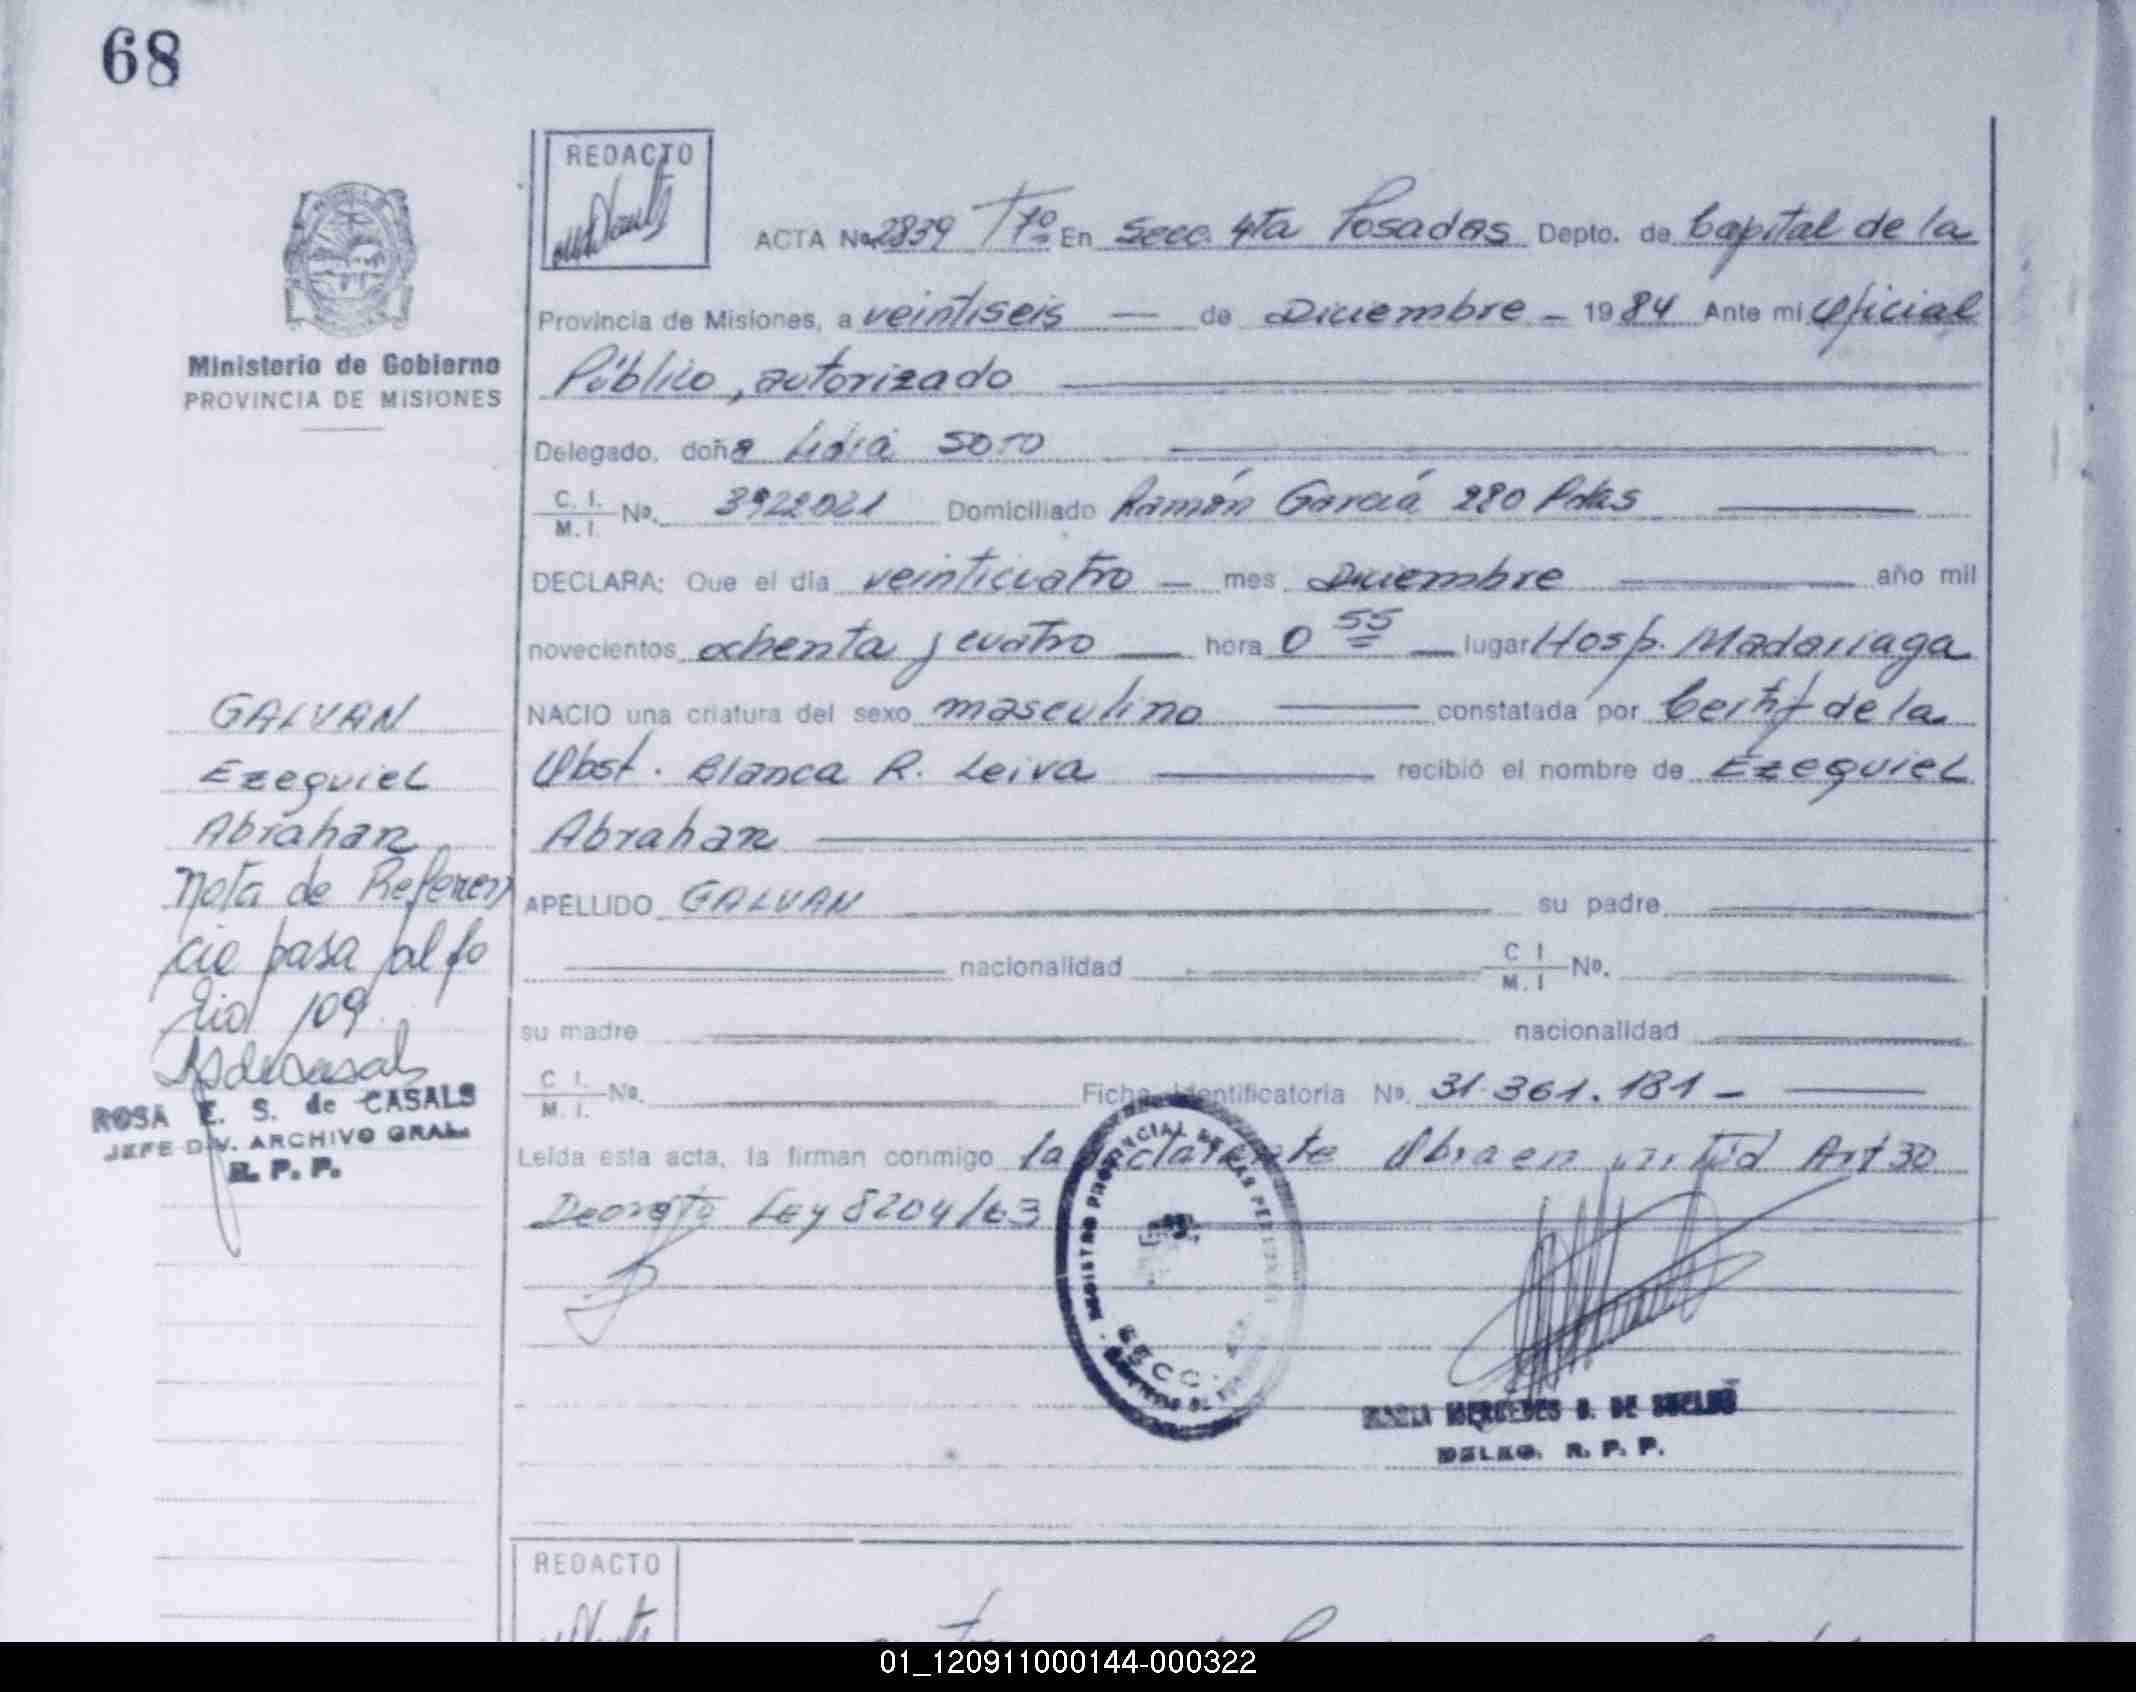 68
REDACTO
ACTA No. 2839 Tº 7º En Secc. 4ta Posadas Depto. de Capital de la
Provincia de Misiones, a veintiseis — de Diciembre — 1984 Ante mi Oficial
Ministerio de Gobierno
PROVINCIA DE MISIONES
Público, autorizado
Delegado, doña Lidia Soto
C. I.
M. I. No. 3922021 Domiciliado Ramón García 220 Pdas
DECLARA: Que el día veinticuatro — mes Diciembre año mil
novecientos ochenta y cuatro — hora 0 55 — lugar Hosp. Madariaga
NACIO una criatura del sexo masculino constatada por Certif de la
Obst. Blanca R. Leiva recibió el nombre de Ezequiel
Abrahan
APELLIDO GALVAN su padre
nacionalidad C I
M. I No.
su madre nacionalidad
C I.
M. I. No. Ficha Identificatoria No. 31.361.181 —
Leída esta acta, la firman conmigo la declarante Obra en virtud Art 30
Decreto Ley 8204/63
GALVAN
Ezequiel
Abrahan
Nota de Referen
cia pasa al fo
lio 109
ROSA E. S. de CASALS
JEFE DIV. ARCHIVO GRAL.
R. P. P.
REGISTRO PROVINCIAL DE LAS PERSONAS
SECC.
MARIA MERCEDES
DELEG. R. P. P.
REDACTO
01_120911000144-000322